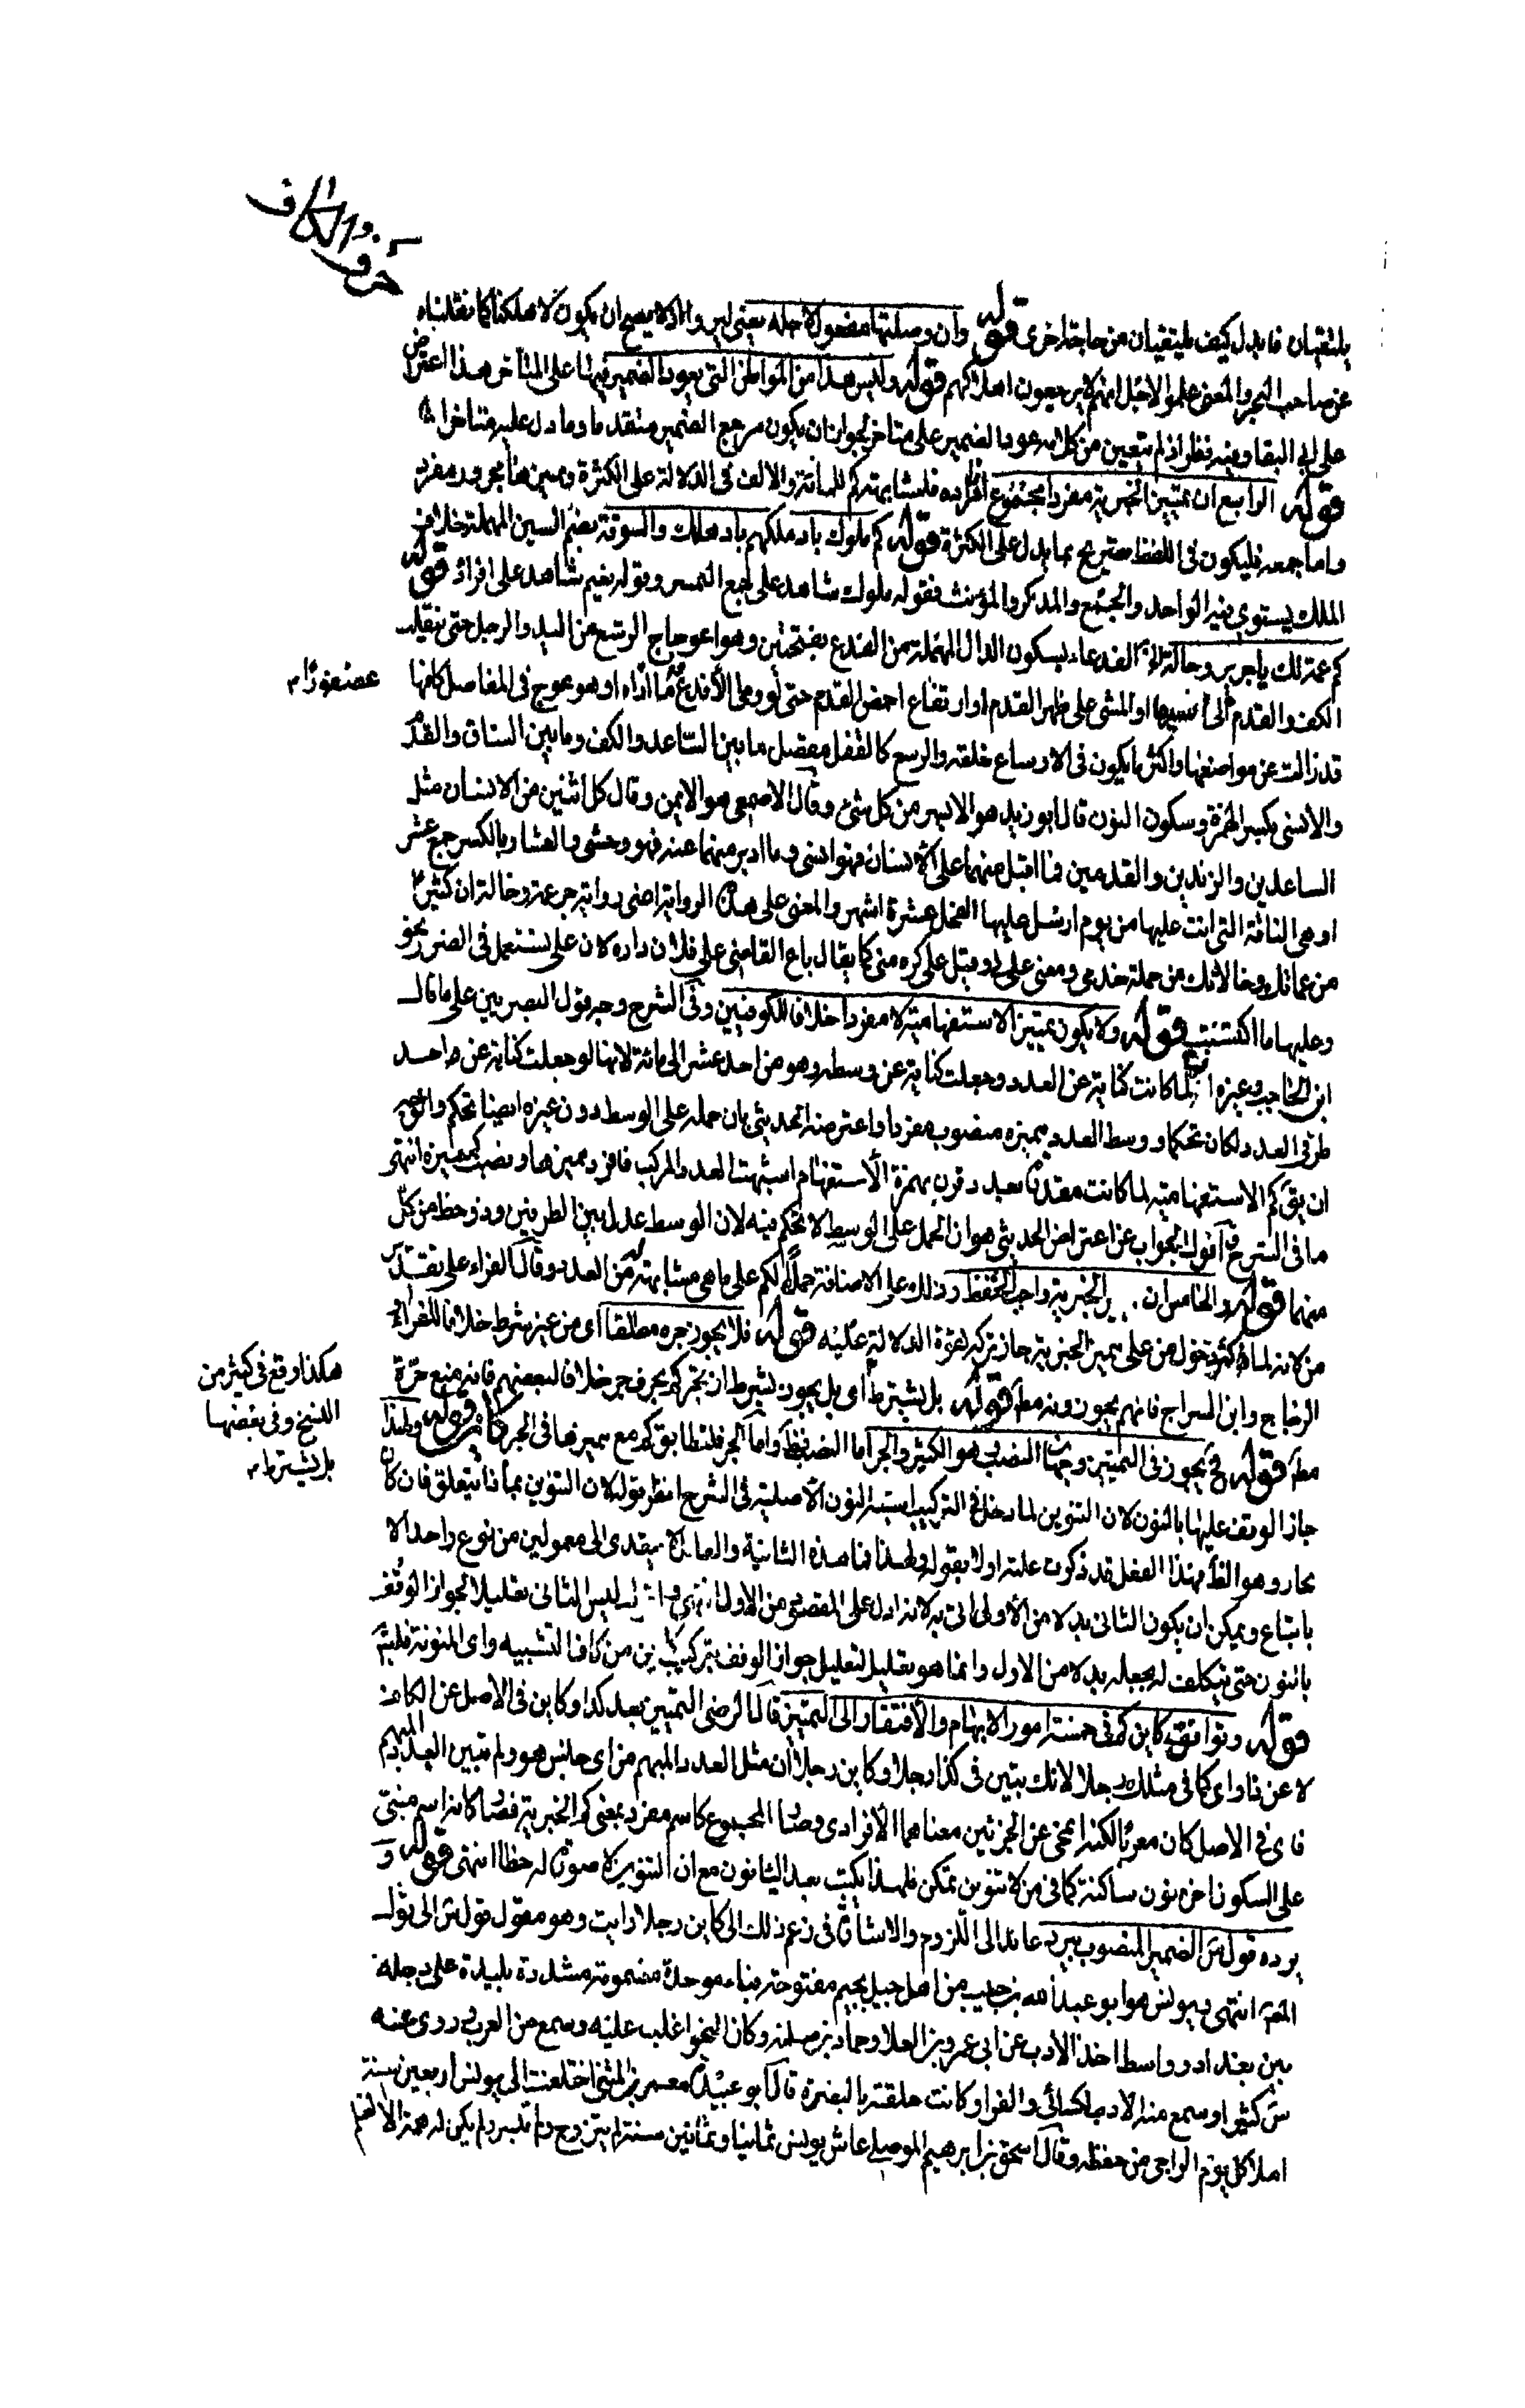 حرف الكاف
يلتقيان فابدل كيف يلتقيان من حاجة اخرى قوله وان وصلتها مفعول لاجله يعني ليروا اذ لا يصح ان يكون لاهلكنا كما نقلناه
عن صاحب البحر والمعنى علموا لاجل انهم لا يرجعون اهلاكهم قوله وليس هذا من المواطن التي يعود الضمير فيها على المتاخر هذا اعتراض
على ابي البقا وفيه نظر اذ لم يتعين من كلامه عود الضمير على متاخر لجواز ان يكون مرجع الضمير متقدما وما دل عليه متاخرا
قوله الرابع ان تمييز الخبرية مفرد او مجموع افراده فلمشابهته كم للمائة والالف في الدلالة على الكثرة ومميزهما مجرور مفرد
واما جمعه فليكون في اللفظ تصريح بما يدل على الكثرة قوله كم ملوك باد ملكهم باد هلك والسوقة بضم السين المهملة خلاف
الملك يستوي فيه الواحد والجمع والمذكر والمؤنث فقوله ملوك شاهد على جمع التمييز وقوله نعيم شاهد على افراده قوله
كم عمة لك يا جرير وخالة الخ الفدعاء بسكون الدال المهملة من الفدع بفتحتين وهو اعوجاج الرسغ من اليد والرجل حتى ينقلب
الكف والقدم الى انسيها او المشي على ظهر القدم او ارتفاع اخمص القدم حتى لو وطئ الافدع عصفورا ما اذاه او هو عوج في المفاصل كانها
عصفورا م
قد زالت عن مواضعها واكثر ما يكون في الارساغ خلقة والرسغ كالقفل مفصل ما بين الساعد والكف وما بين الساق والقدم
والانسي بكسر الهمزة وسكون النون قال ابو زيد هو الايسر من كل شيء وقال الاصمعي هو الايمن وقال كل اثنين من الانسان مثل
الساعدين والزندين والقدمين فما اقبل منهما على الانسان فهو انسي وما ادبر منهما عنه فهو وحشي والعشار بالكسر جمع عشر
او هي الناقة التي اتت عليها من يوم ارسل عليها الفحل عشرة اشهر والمعنى على هذه الرواية اعني رواية جر عمة وخالة ان كثيرا
من عماتك وخالاتك من جملة خدمي ومعنى علي اي وقبل على كره مني كما يقال باع القاضي على فلان داره لان على يستعمل في الضرر نحو
وعليها ما اكتسبت قوله ولا يكون تمييز الاستفهامية الا مفردا خلافا للكوفيين وفي الشرح وجه قول البصريين على ما قال
ابن الحاجب وغيره انها لما كانت كناية عن العدد وجعلت كناية عن وسطه وهو من احد عشر الى مائة لانها لو جعلت كناية عن واحد
طرفي العدد لكان تحكما ووسط العدد مميزه منصوب مفردا واعترضه الحديثي بان حمله على الوسط دون غيره ايضا تحكم والوجه
ان يق كم الاستفهامية لما كانت مقدرة بعدد قرن بهمزة الاستفهام اشبهت العدد المركب فافرد مميزها ونصب كمميزه انتهى
ما في الشرح واقول الجواب عن اعتراض الحديثي هو ان الحمل على الوسط لا تحكم فيه لان الوسط عدل بين الطرفين وذو حظ من كل
منهما قوله والخامس ان الخبرية واجب الخفض وذلك على الاضافة حملا لكم على ما هي مشابهة له من العدد وقال الفراء على تقدير
من لانه لما كثر دخول من على مميز الخبرية جاز تركه لقوة الدلالة عليه قوله فلا يجوز جره مطلقا اي من غير شرط خلافا للفراء و
الزجاج وابن السراج فانهم يجوزونه مط قوله بل يشترط اي بل يجوز بشرط ان تجر كم بحرف جر خلافا لبعضهم فانه منع جره
هكذا وقع في كثير من
النسخ وفي بعضها
بل يشترط م
مط قوله فح يجوز في التمييز وجهان النصب وهو الكثير والجر اما النصب واما الجر فلتطابق كم مع مميزها في الجر قوله ولهذا
جاز الوقف عليها بالنون لان التنوين لما دخل في التركيب اشبه النون الاصلية في الشرح انظر قوله لان التنوين بماذا يتعلق فان كان
بجاز وهو الظ بهذا الفعل قد ذكرت علته اولا بقوله ولهذا فما هذه الثانية والعامل لا يتعدى الى معمولين من نوع واحد الا
باتباع ويمكن ان يكون الثاني بدلا من الاولى اتي به لانه ادل على المقصود من الاول انتهى واقول ليس الثاني تعليلا لجواز الوقف
بالنون حتى يتكلف له بجعله بدلا من الاول وانما هو تعليل لتعليل جواز الوقف بتركيب كاين من كاف التشبيه واي المنونة فليتم
قوله وتوافق كاين كم في خمسة امور الابهام والافتقار الى التمييز قال الرضي التمييز بعد كذا وكاين في الاصل عن الكاف
لا عن ذا واي كما في مثلك رجلا لانك تبين في كذا رجلا وكاين رجلا ان مثل العدد المبهم من اي جنس هو ولم تبين العدد المبهم
فاي في الاصل كان معربا لكنه انمحى عن الجزئين معناهما الافرادي وصار المجموع كاسم مفرد بمعنى كم الخبرية فصار كانه اسم مبني
على السكون اخره نون ساكنة كما في من لا تنوين تمكن فلهذا يكتب بعد الياء نون مع ان التنوين لا صورة له خطا انتهى قوله و
يرده قول س الضمير المنصوب بيرده عائد الى اللزوم والاشارة في زعم ذلك الى كاين رجلا رايت وهو مقول قول س الى قوله
الخ انتهى ويونس هو ابو عبد الله بن حبيب من اهل جبل بجيم مفتوحة وباء موحدة مضمومة مشددة بليدة على دجلة
بين بغداد وواسط اخذ الادب عن ابي عمرو بن العلا وحماد بن سلمة وكان النحو اغلب عليه وسمع من العرب وروى عنه
س كثيرا وسمع منه الادب الكسائي والفرا وكانت حلقته بالبصرة قال ابو عبيدة معمر بن المثنى اختلفت الى يونس اربعين سنة
املا كل يوم الواحي من حفظه وقال اسحق بن ابرهيم الموصلي عاش يونس ثمانيا وثمانين سنة لم يتزوج ولم يتسر ولم يكن له همة الا العلم